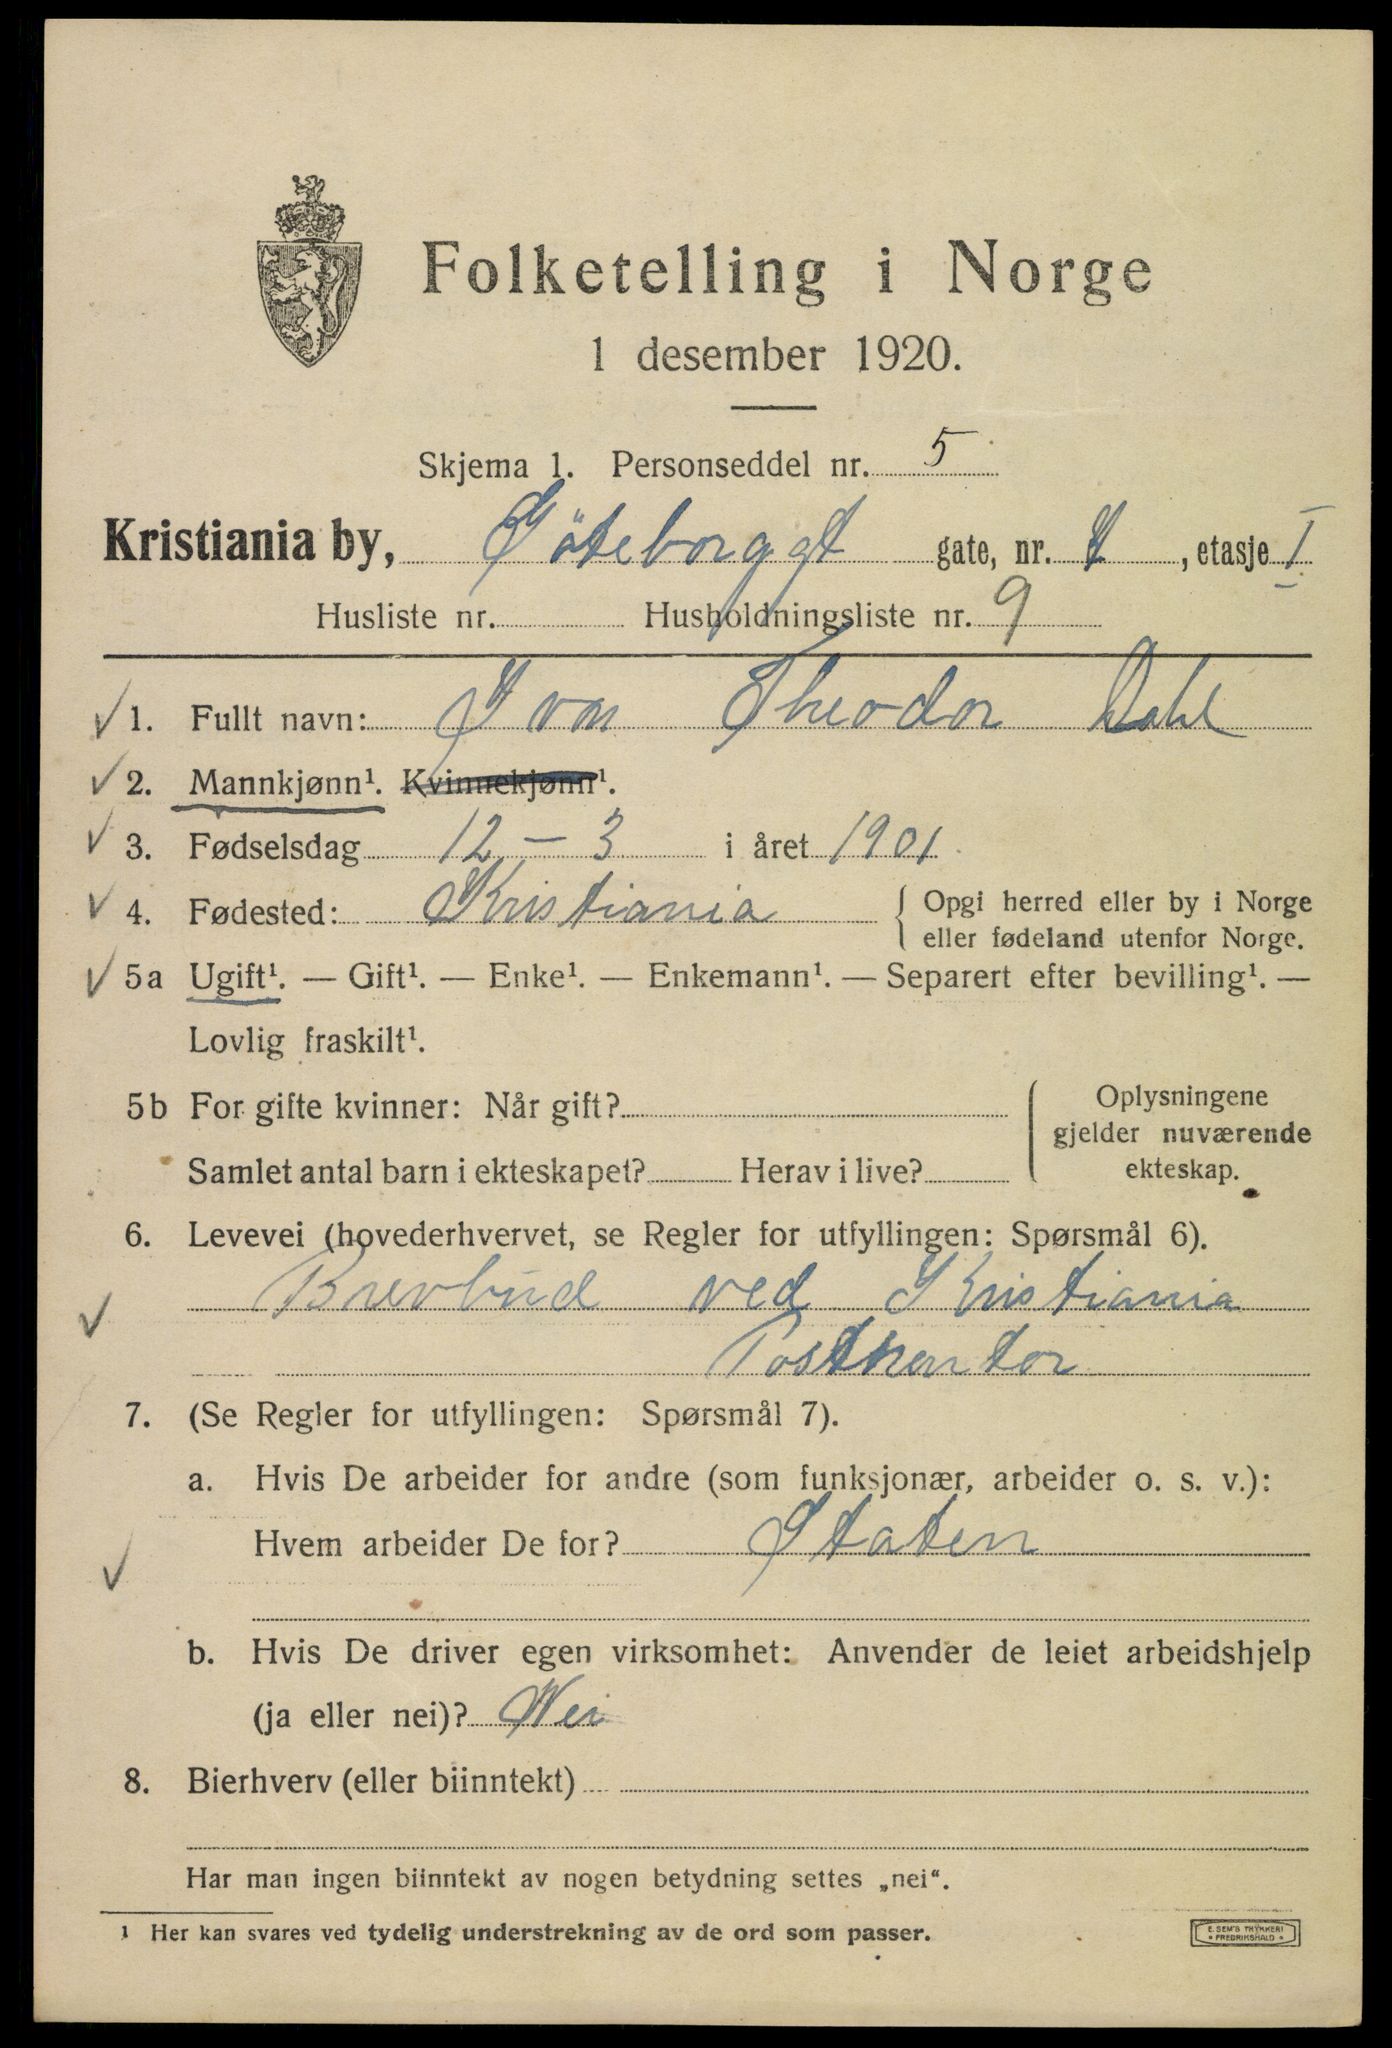 Folketelling i Norge
1 desember 1920.
Skjema 1. Personseddel nr. 5
Kristiania by, Göteborggt gate, nr. , etasje I
Husliste nr. Husholdningsliste nr. 9
1. Fullt navn: Ivar Theodor Dahl
2. Mannkjønn¹. Kvinnekjønn¹.
3. Fødselsdag 12 – 3 i året 1901
4. Fødested: Kristiania { Opgi herred eller by i Norge
eller fødeland utenfor Norge.
5a Ugift¹. — Gift¹. — Enke¹. — Enkemann¹. — Separert efter bevilling¹. —
Lovlig fraskilt¹.
5b For gifte kvinner: Når gift?
Samlet antal barn i ekteskapet? Herav i live?
{ Oplysningene
gjelder nuværende
ekteskap.
6. Levevei (hovederhvervet, se Regler for utfyllingen: Spørsmål 6).
Brevbud ved Kristiania
Postkontor
7. (Se Regler for utfyllingen: Spørsmål 7).
a. Hvis De arbeider for andre (som funksjonær, arbeider o. s. v.):
Hvem arbeider De for? Staten
b. Hvis De driver egen virksomhet: Anvender de leiet arbeidshjelp
(ja eller nei)? Nei
8. Bierhverv (eller biinntekt)
Har man ingen biinntekt av nogen betydning settes „nei“.
1 Her kan svares ved tydelig understrekning av de ord som passer.
E. SEM'S TRYKKERI
• FREDRIKSHALD •